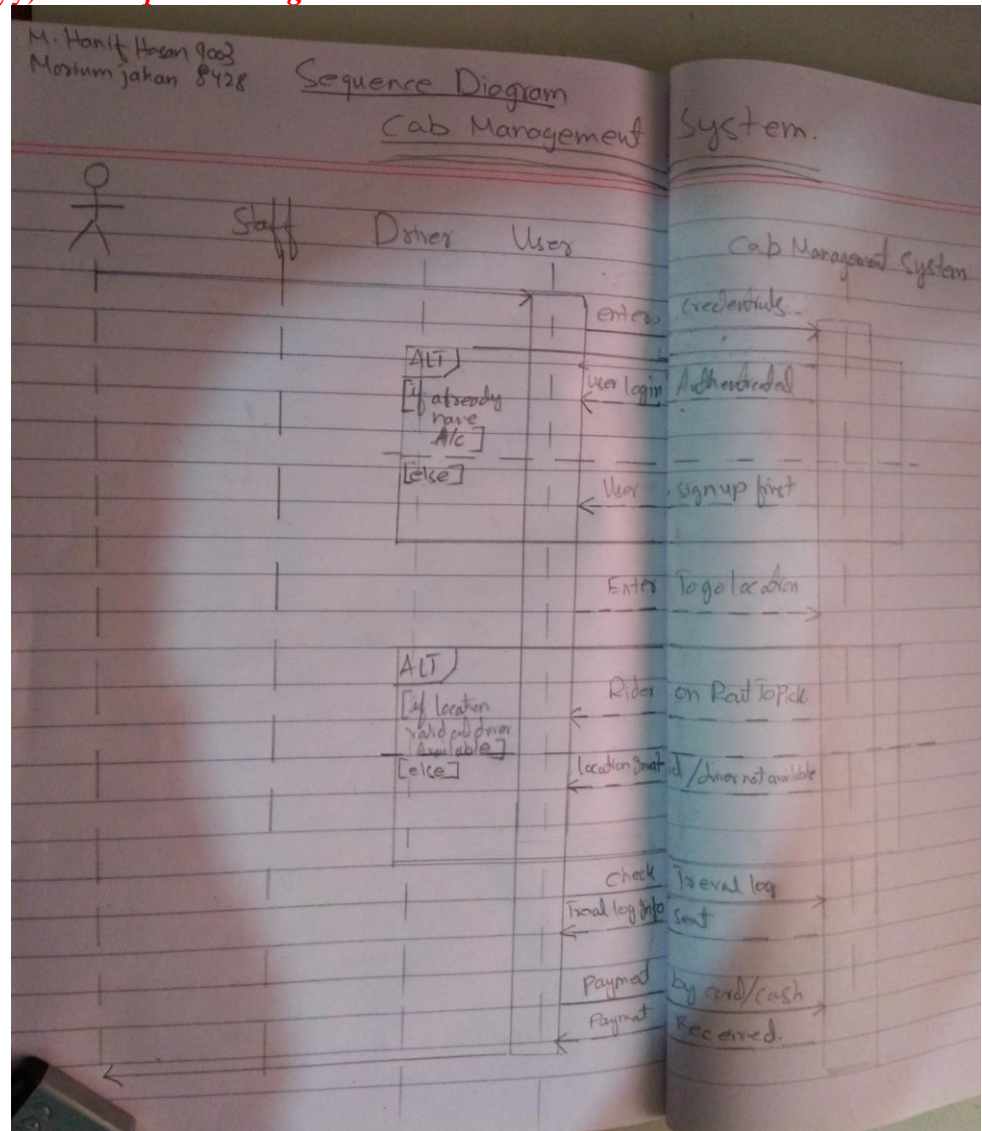 M. Hanif Hasan 9003
Moxium jahan 8428
Sequence Diagram
Cab Management System.
Staff
Driver
User
Cab Management System
enter credentials
ALT
[if already
have
A/c]
User login Authenticated
[else]
User signup first
Enter To go location
ALT
[if location
valid and driver
Available]
Rider on Rout To Pick
[else]
location Invalid / driver not available
Check Treval log
Traval log Info sent
Payment by card/cash
Payment Received.